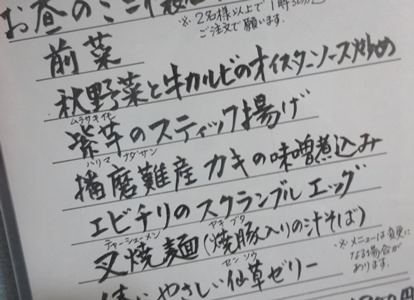 お昼のミニ
※2名様以上で1時
ご注文で願います。
前菜
秋野菜と牛カルビのオイスターソース炒め
ムラサキイモ
紫芋のスティック揚げ
ハリマ ナダサン
播磨難産 カキの味噌煮込み
エビチリのスクランブルエッグ
チャーシューメン ヤキブタ
叉焼麺(焼豚入りの汁そば)
※メニューは変更に
なる場合が
あります。
センソウ
やさしい仙草ゼリー